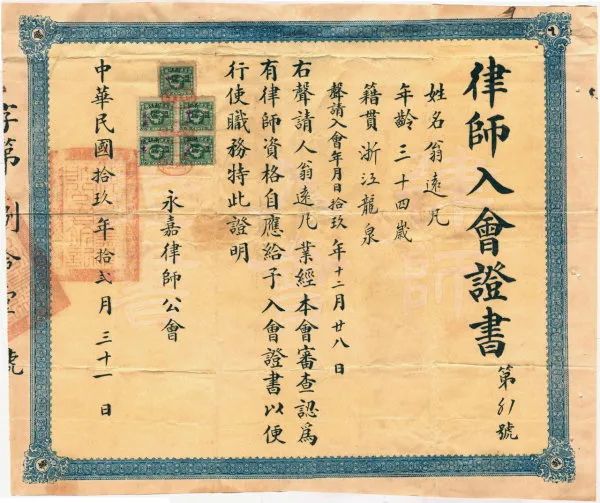 律師入會證書 第81號
姓名翁遠凡
年齡三十四歲
籍貫浙江龍泉
聲請入會年月日拾玖年十二月廿八日
右聲請人翁遠凡業經本會審查認爲
有律師資格自應給予入會證書以便
行使職務特此證明
永嘉律師公會
中華民國拾玖年拾弍月三十一日
字第捌拾壹號